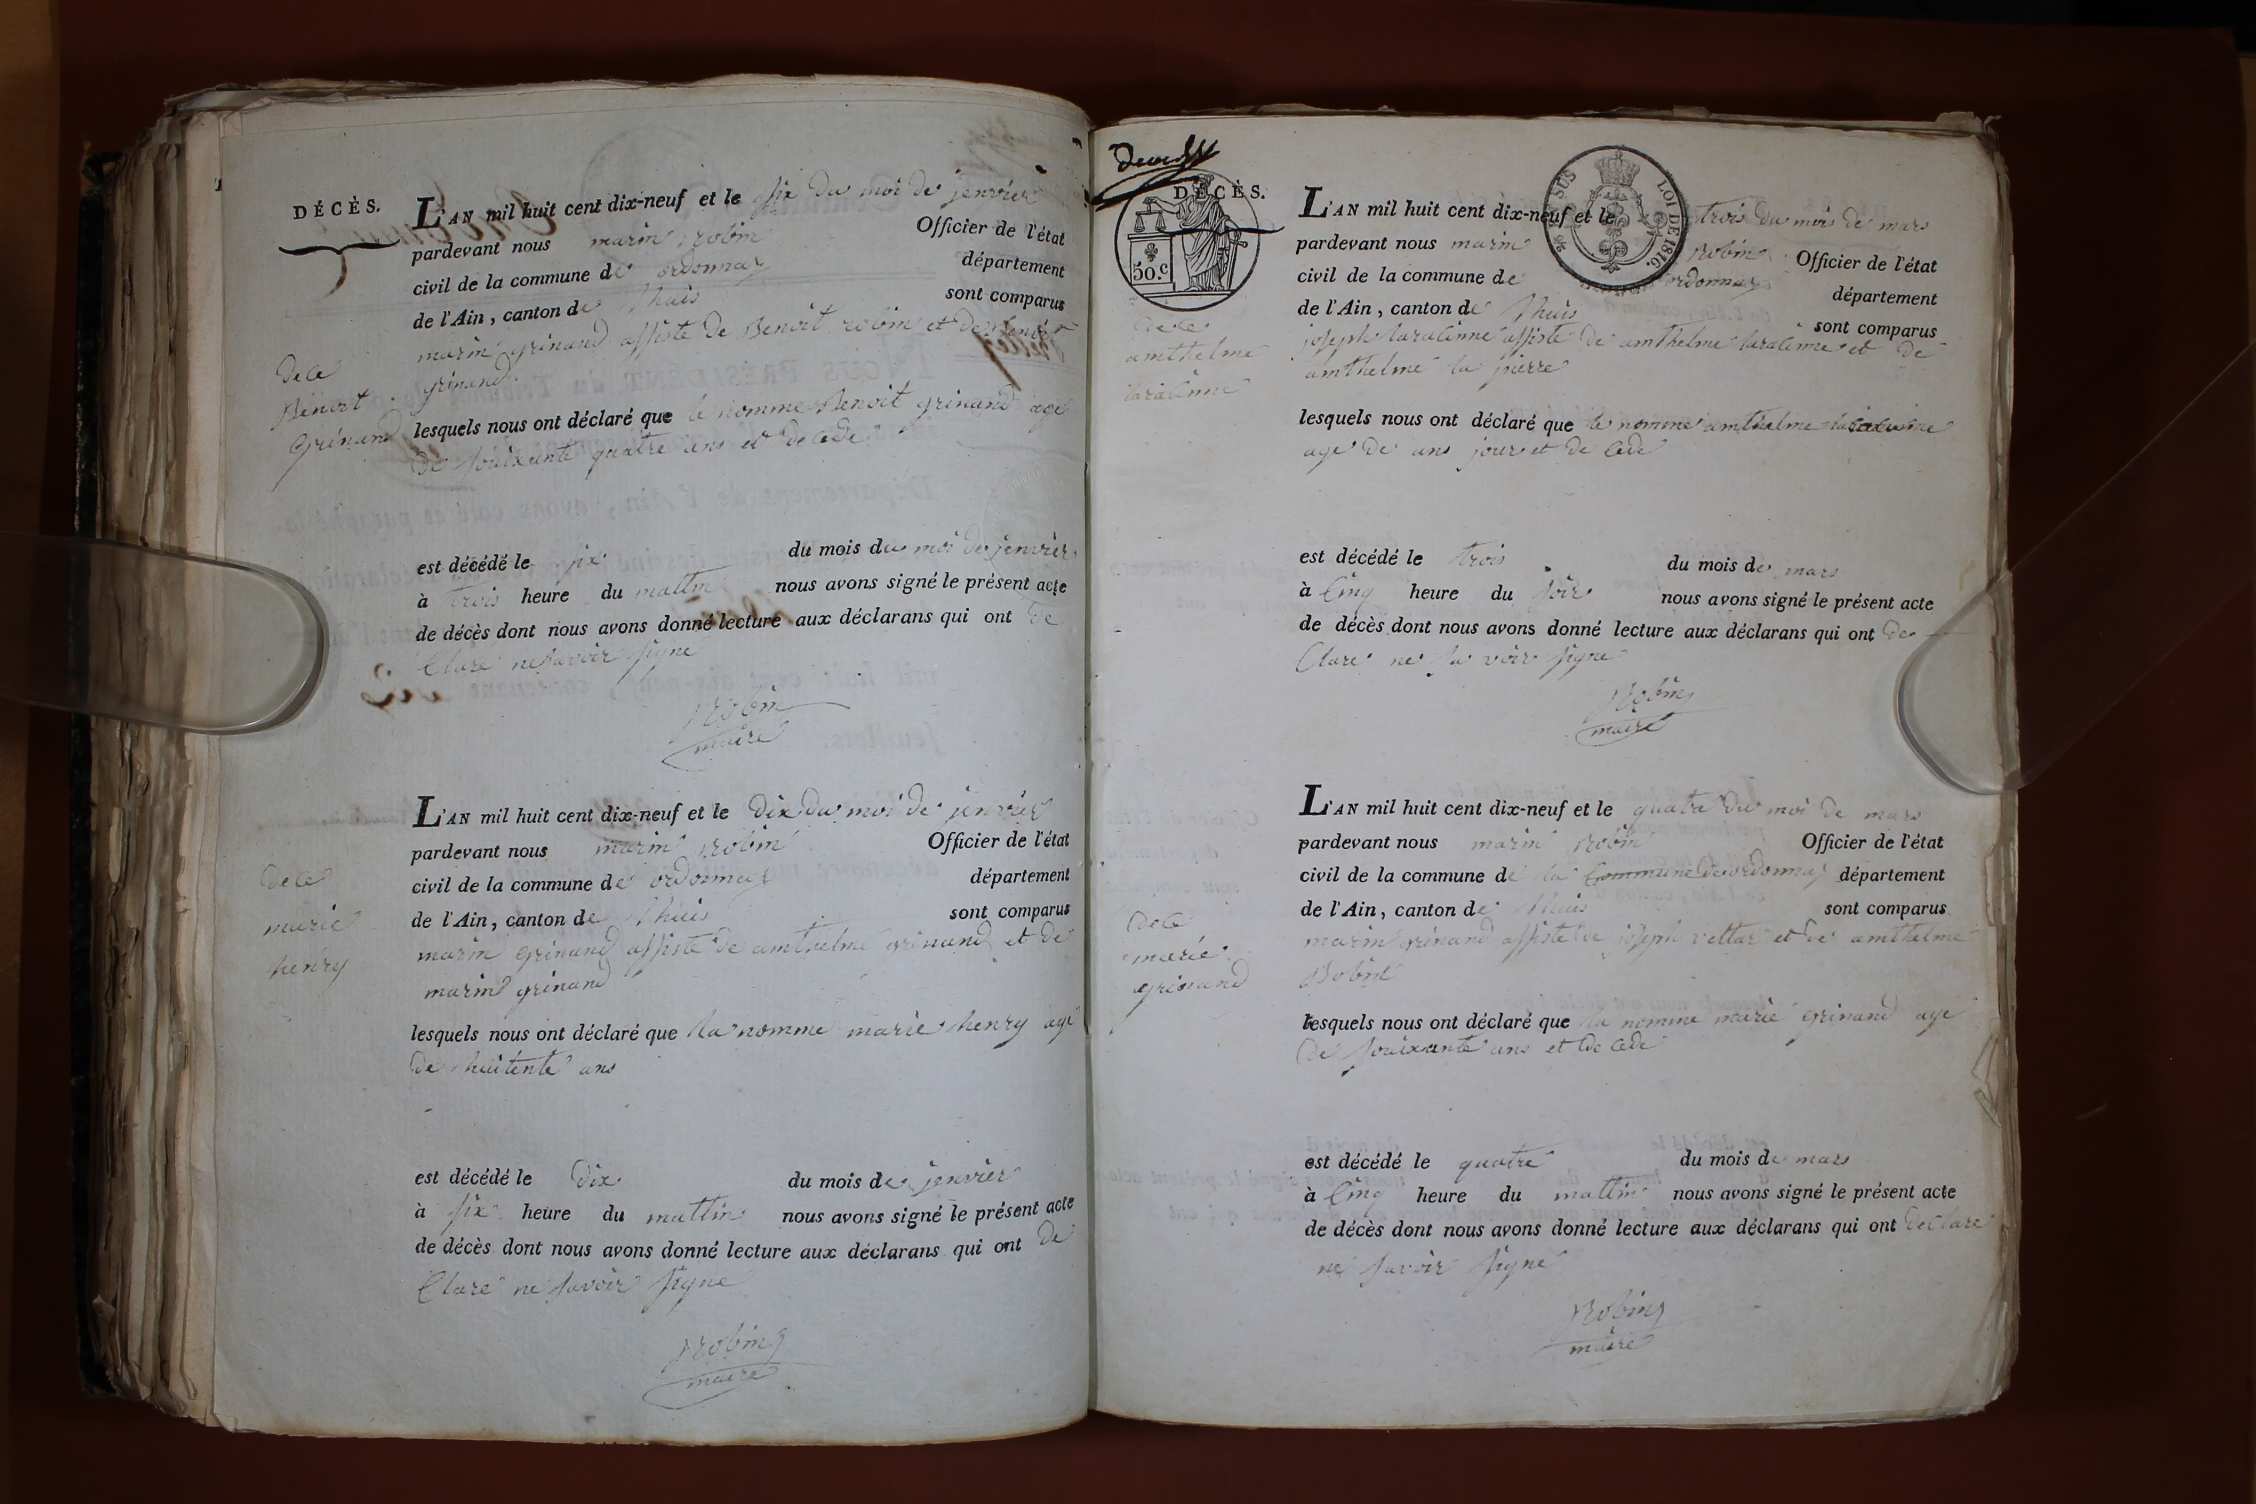 DÉCÈS.
L'AN mil huit cent dix-neuf et le six du moi de jenvier
pardevant nous marin robin Officier de l'état
civil de la commune de ordonnaz département
de l'Ain, canton de lhuis sont comparus
marin grinand assiste de Benoit robin et de benoit
grinand
dece
Benoit
grinand
lesquels nous ont déclaré que le nomme Benoit grinand age
de souixante quatre ans et decede
est décédé le six du mois du moi de jenvier
à trois heure du mattin nous avons signé le présent acte
de décès dont nous avons donné lecture aux déclarans qui ont de
Clare ne savoir signe
Robin
maire
L'AN mil huit cent dix-neuf et le Dix du moi de jenvier
pardevant nous marin robin Officier de l'état
civil de la commune de ordonnaz département
de l'Ain, canton de lhuis sont comparus
marin grinand assiste de amthelme grinand et de
marin grinand
dece
marie
henry
lesquels nous ont déclaré que la nomme marie henry age
de huitente ans
est décédé le Dix du mois de jenvier
à six heure du mattin nous avons signé le présent acte
de décès dont nous avons donné lecture aux déclarans qui ont de
Clare ne savoir signe
Robin
maire
DÉCÈS.
50.c
EN SUS
LOI DE 1816.
L'AN mil huit cent dix-neuf et le trois du mois de mars
pardevant nous marin robin Officier de l'état
civil de la commune de ordonnaz département
de l'Ain, canton de lhuis sont comparus
joseph laracinne assiste de amthelme laracinne et de
amthelme la pierre
dece
amthelme
laracinne
lesquels nous ont déclaré que le nomme amthelme laracinne
age de ans jour et de cede
est décédé le trois du mois de mars
à Cinq heure du soir nous avons signé le présent acte
de décès dont nous avons donné lecture aux déclarans qui ont de
Clare ne sa voir signe
Robin
maire
L'AN mil huit cent dix-neuf et le quatre du moi de mars
pardevant nous marin robin Officier de l'état
civil de la commune de la Commune de ordonnaz département
de l'Ain, canton de lhuis sont comparus
marin grinand assiste de joseph vettar et de amthelme
Robin
dece
marie
grinand
lesquels nous ont déclaré que la nomme marie grinand age
de souixante ans et de cede
est décédé le quatre du mois de mars
à Cinq heure du mattin nous avons signé le présent acte
de décès dont nous avons donné lecture aux déclarans qui ont declare
ne savoir signe
Robin
maire